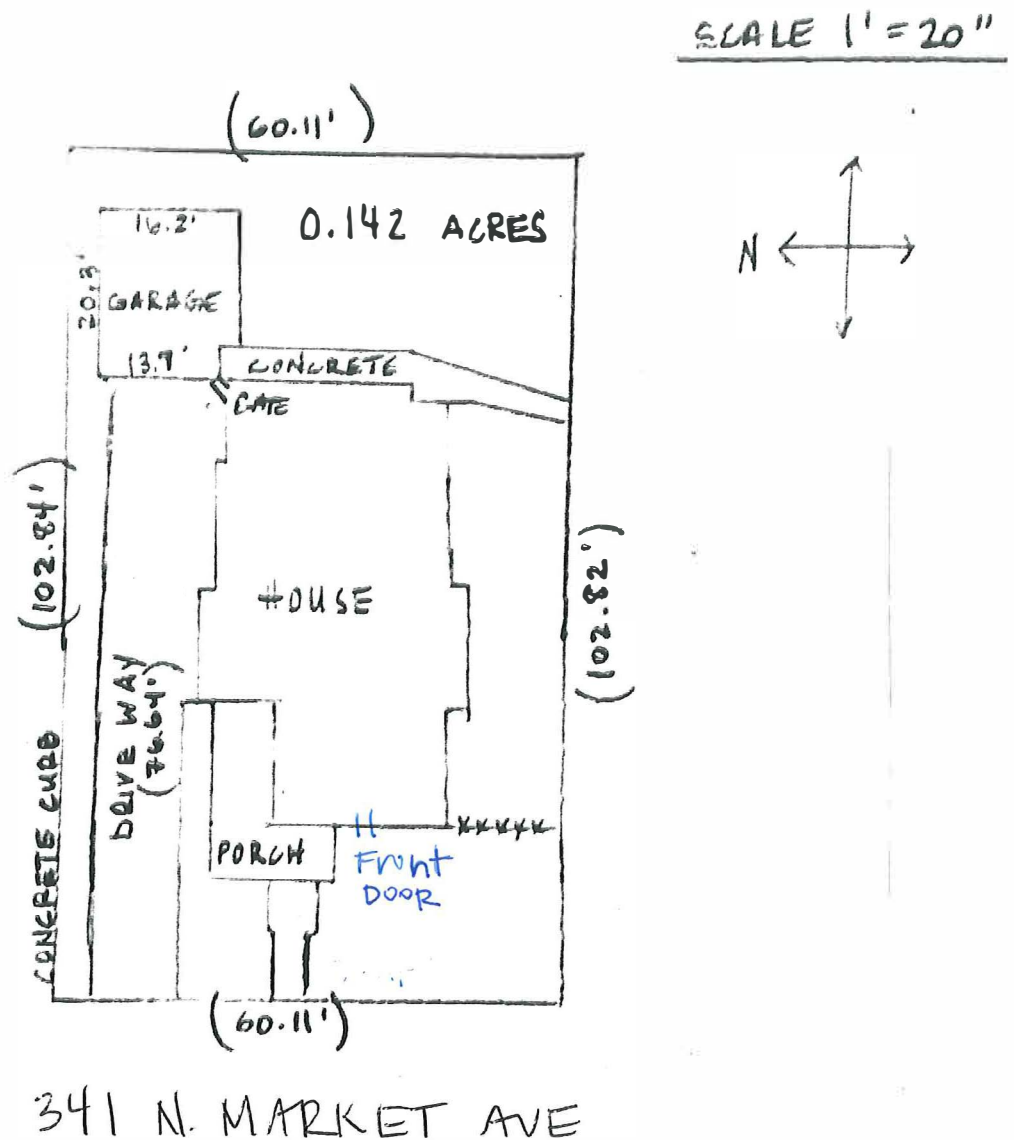 SCALE 1' = 20"
(60.11')
16.2'
0.142 ACRES
20.3'
GARAGE
N
13.9'
CONCRETE
GATE
(102.84')
HOUSE
(102.82')
DRIVE WAY
(76.64')
CONCRETE CURB
PORCH
Front
DOOR
(60.11')
341 N. MARKET AVE